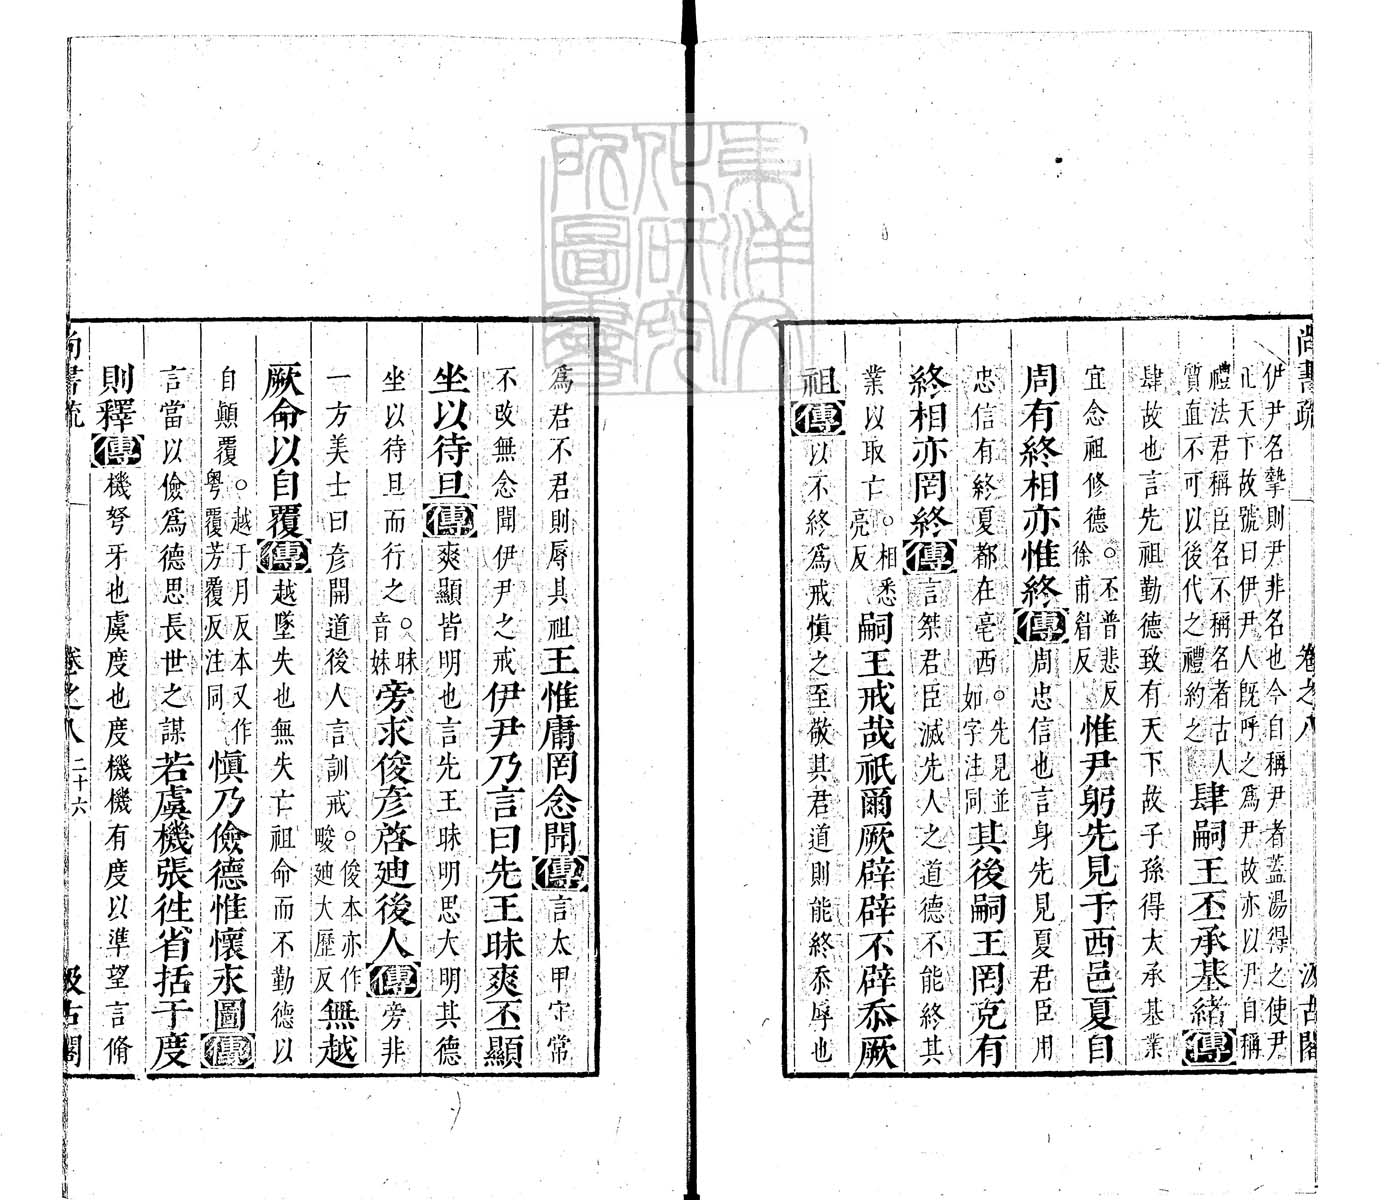 尚書疏 卷之八 汲古閣
伊尹名摯則尹非名也今自稱尹者蓋湯得之使尹
正天下故號曰伊尹人既呼之爲尹故亦以尹自稱
禮法君稱臣名不稱名者古人
質直不可以後代之禮約之
肆嗣王丕承基緒傳
肆故也言先祖勤德致有天下故子孫得大承基業
宜念祖修德○丕普悲反
徐甫眉反
惟尹躬先見于西邑夏自
周有終相亦惟終傳周忠信也言身先見夏君臣用
忠信有終夏都在亳西○先見並
如字注同
其後嗣王罔克有
終相亦罔終傳言桀君臣滅先人之道德不能終其
業以取亡○相悉
亮反
嗣王戒哉祇爾厥辟辟不辟忝厥
祖傳以不終爲戒愼之至敬其君道則能終忝辱也
爲君不君則辱其祖王惟庸罔念聞傳言太甲守常
不改無念聞伊尹之戒伊尹乃言曰先王昧爽丕顯
坐以待旦傳爽顯皆明也言先王昧明思大明其德
坐以待旦而行之○昧
音妹
旁求俊彦啓廸後人傳旁非
一方美士曰彦開道後人言訓戒○俊本亦作
畯廸大歷反
無越
厥命以自覆傳越墜失也無失亡祖命而不勤德以
自顚覆○越于月反本又作
粤覆芳覆反注同
愼乃儉德惟懷永圖傳
言當以儉爲德思長世之謀若虞機張徃省括于度
則釋傳機弩牙也虞度也度機機有度以準望言脩
尚書疏 卷之八 二十六 汲古閣
東洋文化研究所圖書